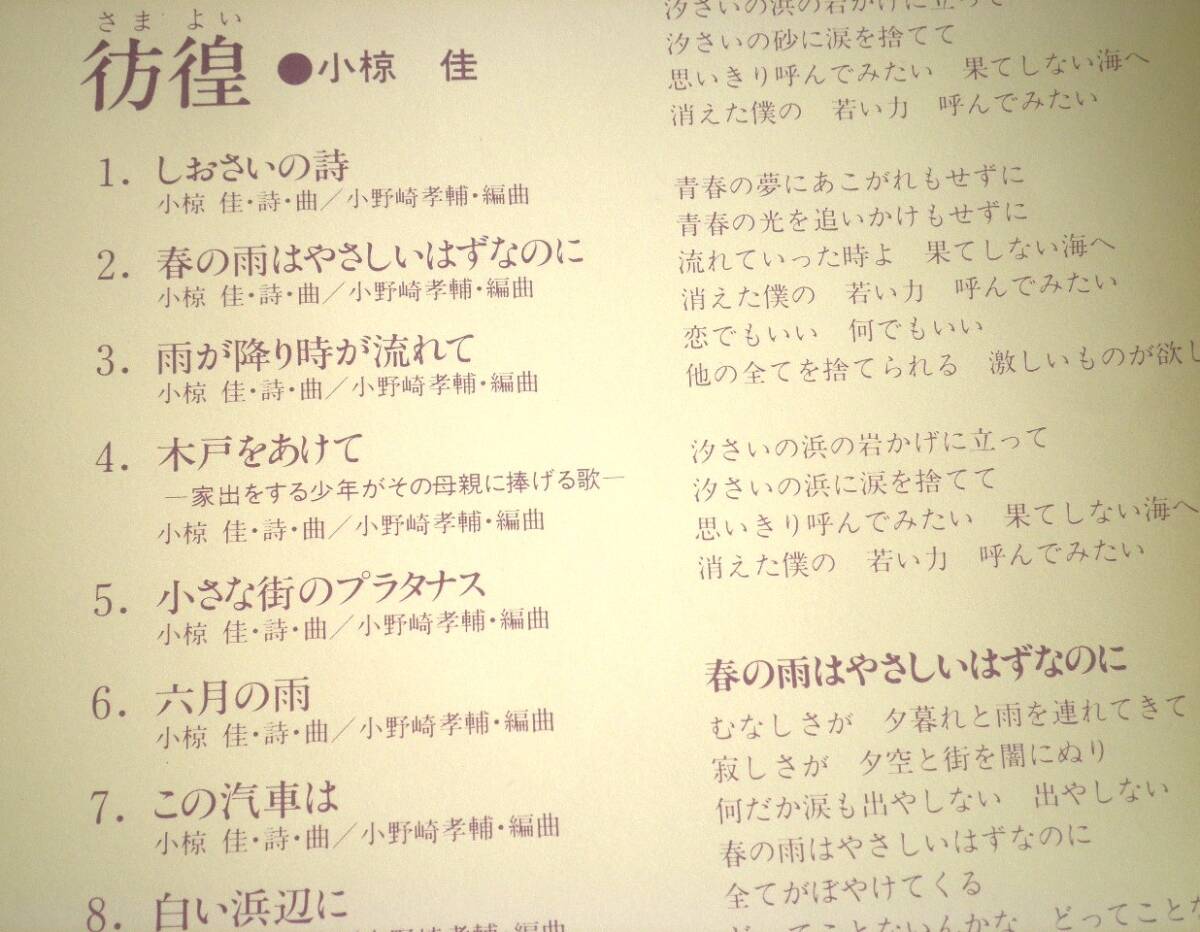 さまよい
彷徨 ●小椋 佳
1. しおさいの詩
小椋 佳・詩・曲／小野崎孝輔・編曲
2. 春の雨はやさしいはずなのに
小椋 佳・詩・曲／小野崎孝輔・編曲
3. 雨が降り時が流れて
小椋 佳・詩・曲／小野崎孝輔・編曲
4. 木戸をあけて
—家出をする少年がその母親に捧げる歌—
小椋 佳・詩・曲／小野崎孝輔・編曲
5. 小さな街のプラタナス
小椋 佳・詩・曲／小野崎孝輔・編曲
6. 六月の雨
小椋 佳・詩・曲／小野崎孝輔・編曲
7. この汽車は
小椋 佳・詩・曲／小野崎孝輔・編曲
8. 白い浜辺に
小野崎孝輔・編曲
汐さいの浜の岩かげに立って
汐さいの砂に涙を捨てて
思いきり呼んでみたい 果てしない海へ
消えた僕の 若い力 呼んでみたい
青春の夢にあこがれもせずに
青春の光を追いかけもせずに
流れていった時よ 果てしない海へ
消えた僕の 若い力 呼んでみたい
恋でもいい 何でもいい
他の全てを捨てられる 激しいものが欲し
汐さいの浜の岩かげに立って
汐さいの浜に涙を捨てて
思いきり呼んでみたい 果てしない海へ
消えた僕の 若い力 呼んでみたい
春の雨はやさしいはずなのに
むなしさが 夕暮れと雨を連れてきて
寂しさが 夕空と街を闇にぬり
何だか涙も出やしない 出やしない
春の雨はやさしいはずなのに
全てがぼやけてくる
どってことないんかな どってことな